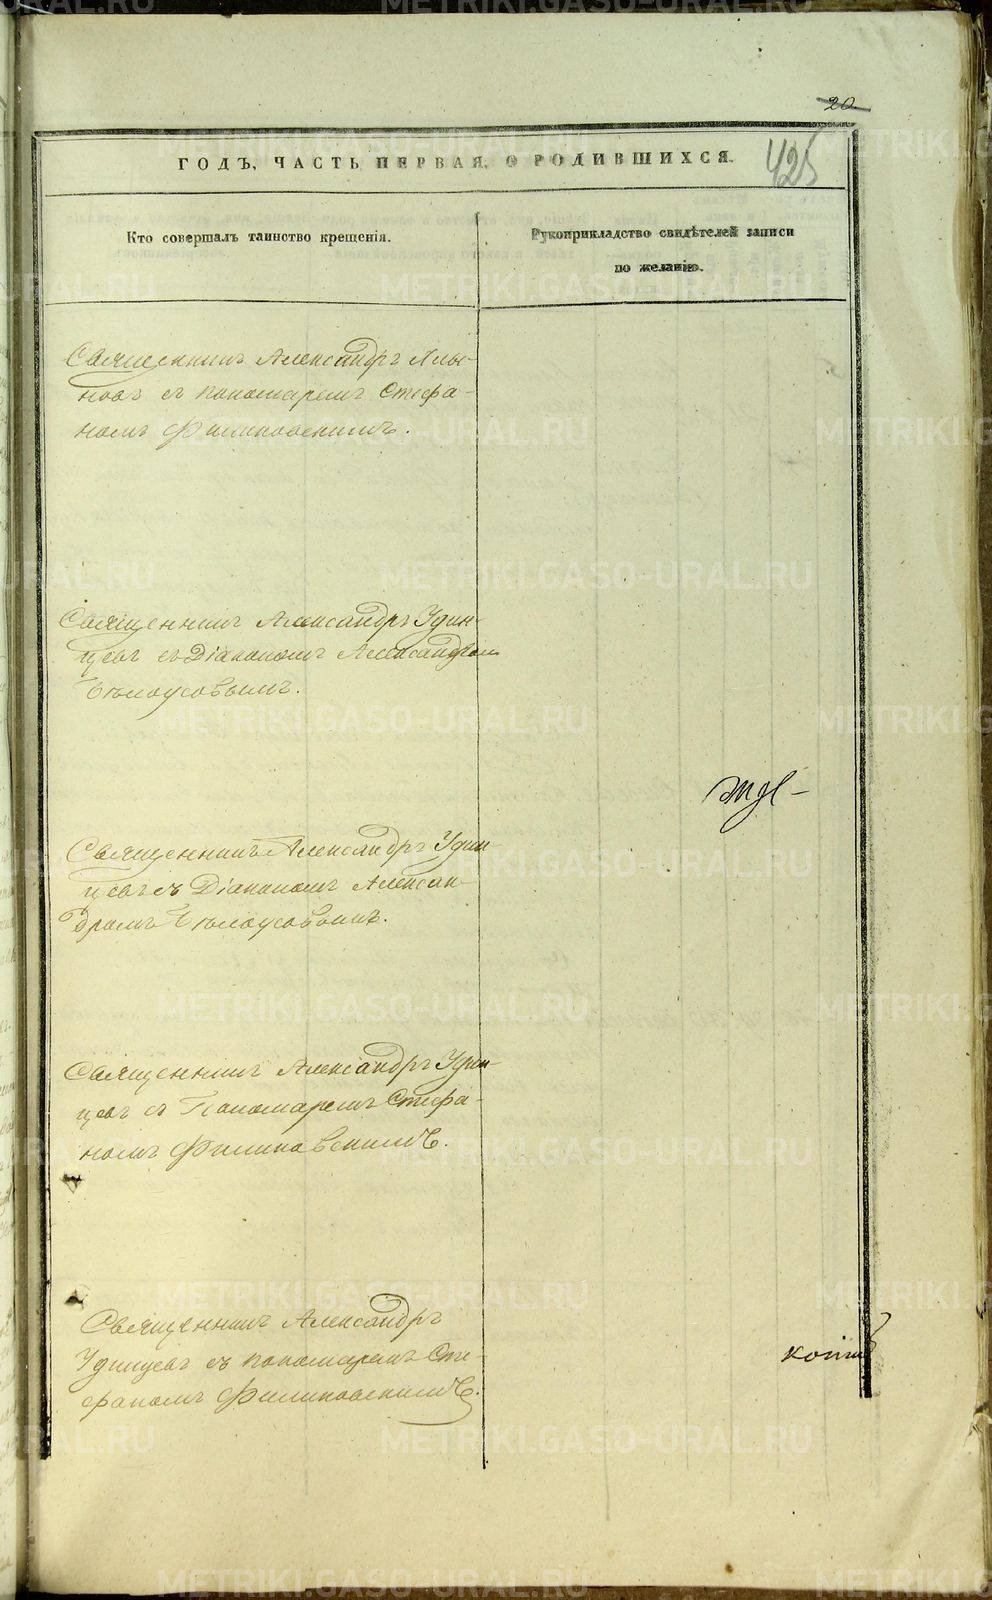 20
ГОДЪ, ЧАСТЬ ПЕРВАЯ, О РОДИВШИХСЯ.
425
Кто совершалъ таинство крещенія.
Рукоприкладство свидѣтелей записи
по желанію.
Священникъ Александръ
новъ съ пономаремъ Стефа-
номъ Филиповскимъ.
Священникъ Александръ Удин-
цевъ съ Діакономъ Александром
Бѣлоусовымъ.
Священникъ Александръ Удин-
цевъ съ Діакономъ Алексан-
дромъ Бѣлоусовымъ.
Священникъ Александръ Удин-
цевъ съ Пономаремъ Стефа-
номъ Филиповскимъ.
Священникъ Александръ
Удинцевъ съ пономаремъ Сте-
фаномъ Филиповскимъ.
METRIKI.GASO-URAL.RU